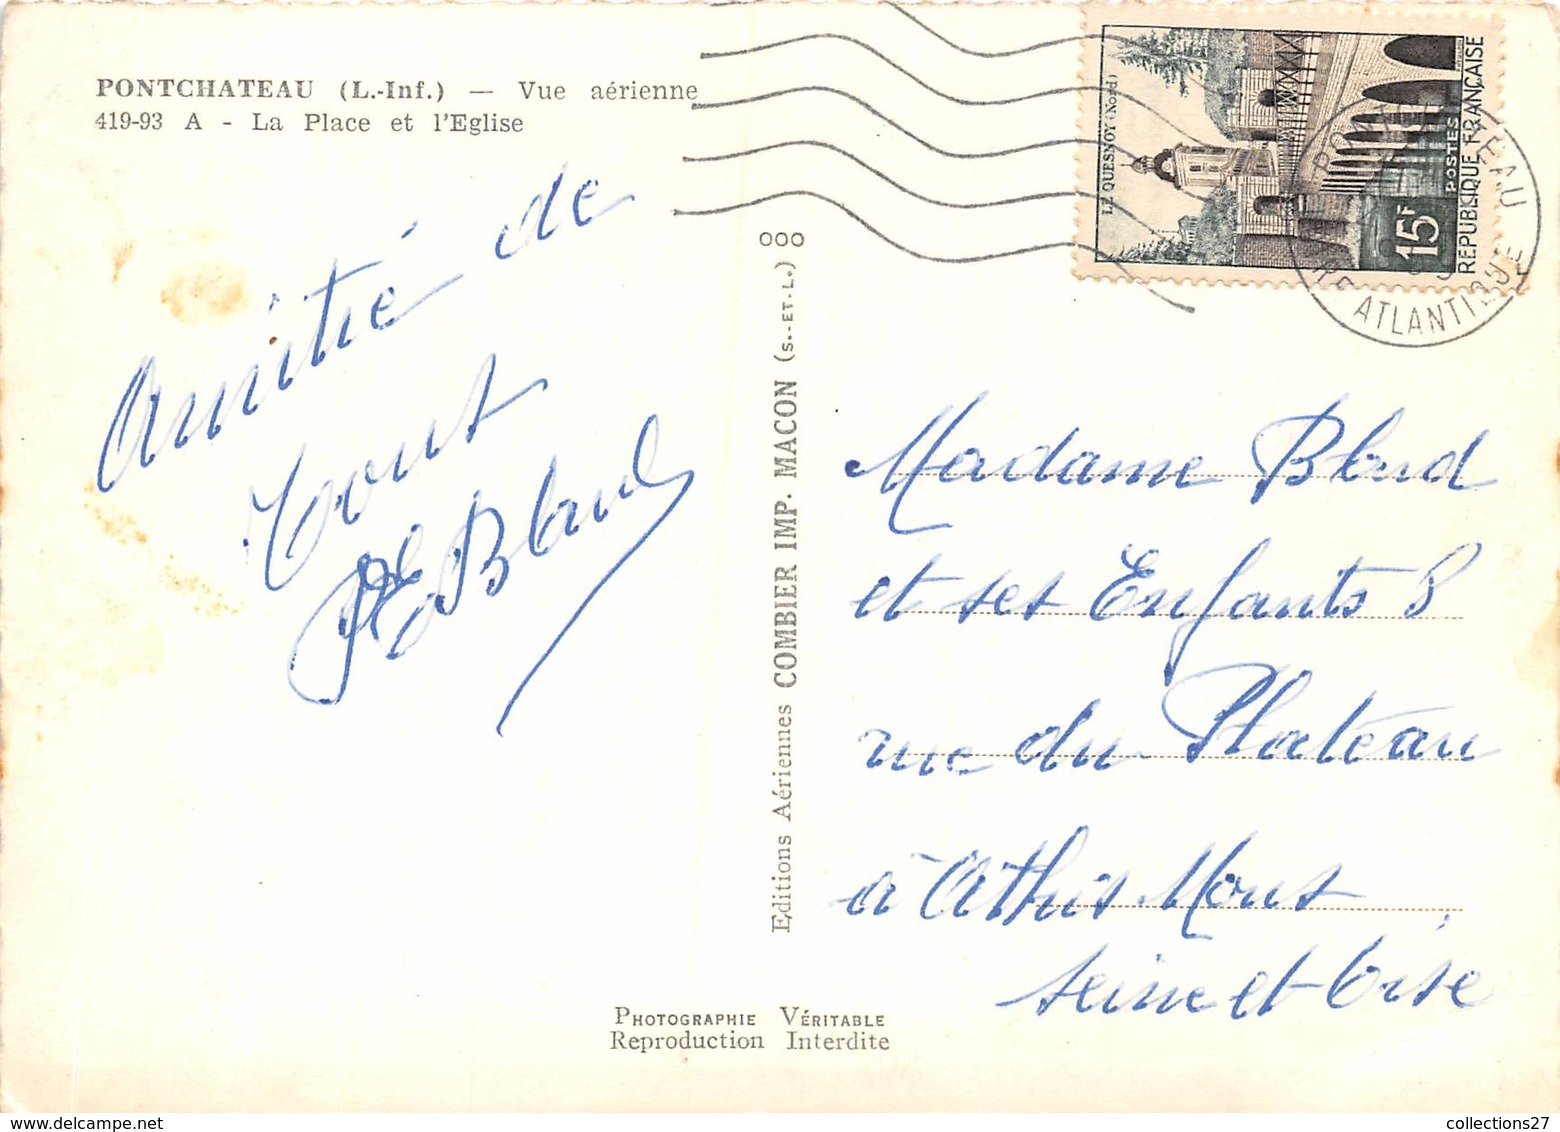 PONTCHATEAU (L.-Inf.) — Vue aérienne
419-93 A - La Place et l'Eglise
Amitié de
Tous
Blaud
LE QUESNOY (Nord)
15F
POSTES
REPUBLIQUE FRANÇAISE
ATLANTIQUE
Editions Aériennes COMBIER IMP. MACON (S.-ET-L.) OOO
Madame Blaud
et ses Enfants 8
rue du Plateau
à Athis Mons
seine et Oise
PHOTOGRAPHIE VÉRITABLE
Reproduction Interdite
collections27